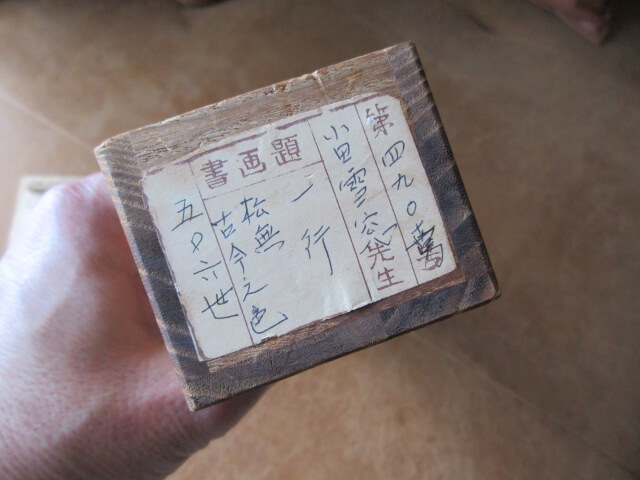 第四九〇
小田雪窓先生
書画題
一行
松無
古今之色
五〇六世